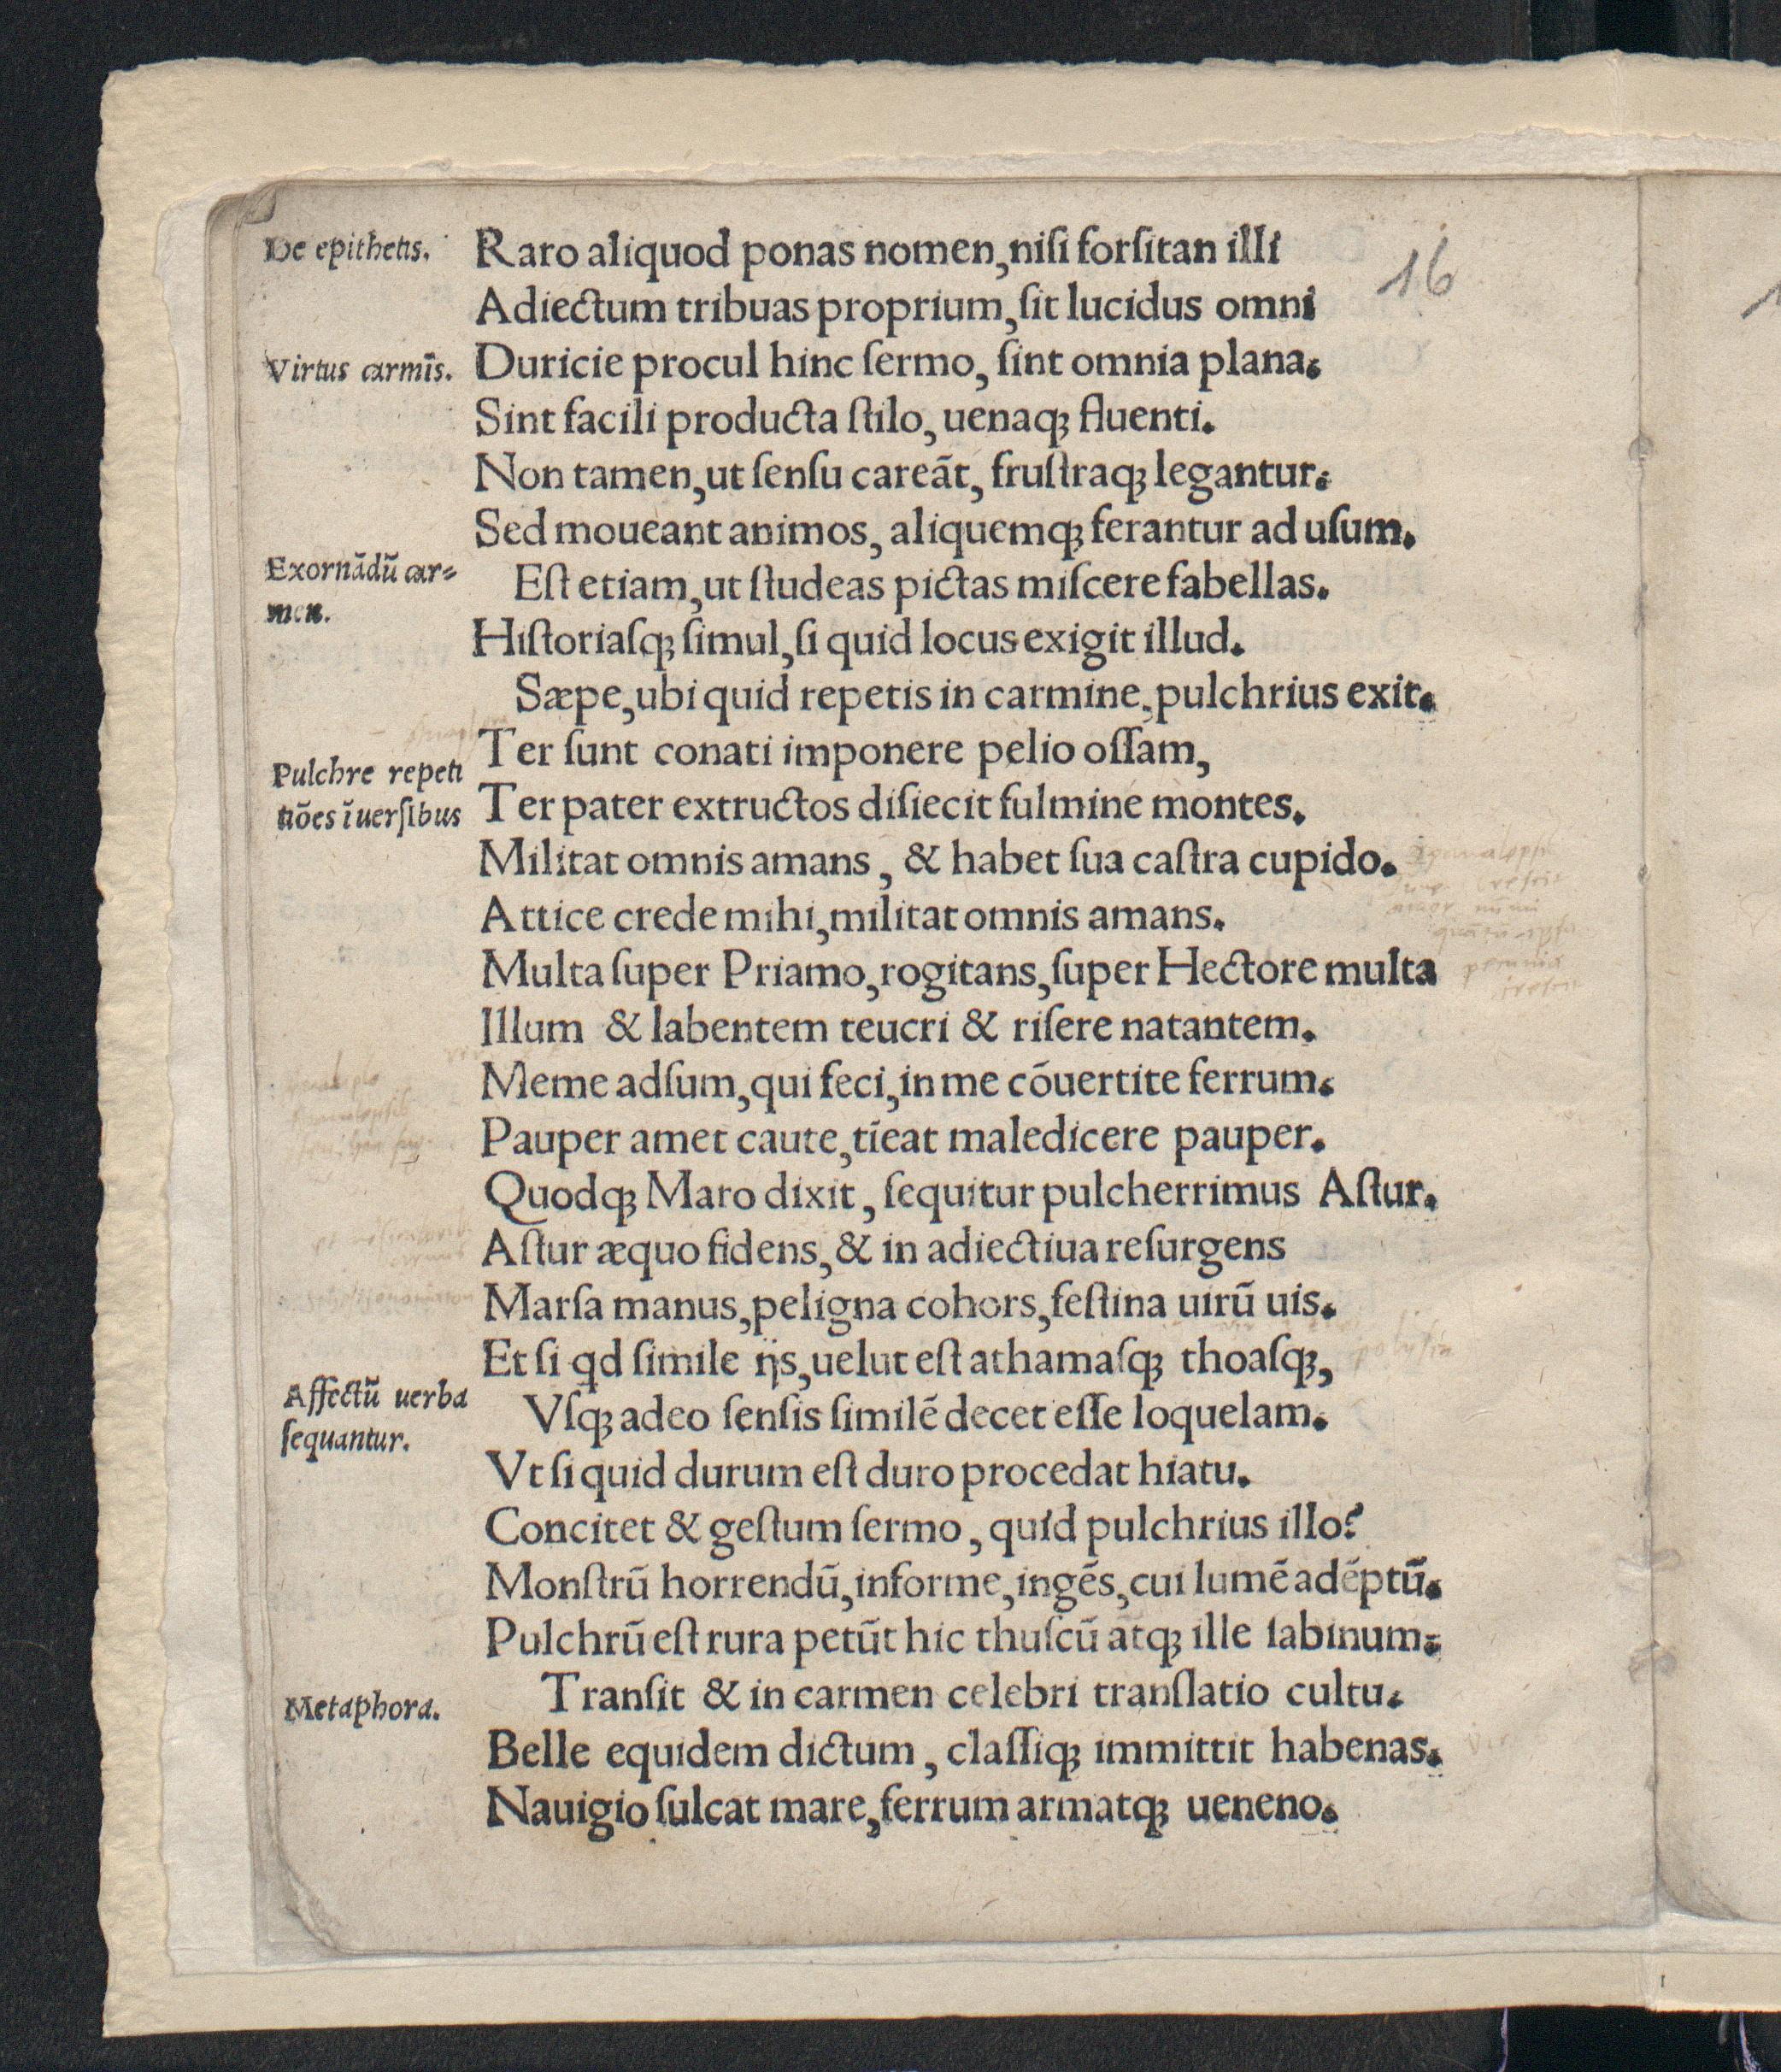 De epithetis.
Raro aliquod ponas nomen, niſi forſitan illi
16
Adiectum tribuas proprium, ſit lucidus omni
Virtus carmīs.
Duricie procul hinc ſermo, ſint omnia plana.
Sint facili producta ſtilo, uenaqꝫ fluenti.
Non tamen, ut ſenſu careāt, fruſtraqꝫ legantur.
Sed moueant animos, aliquemqꝫ ferantur ad uſum.
Exornādū car⸗
men.
Eſt etiam, ut ſtudeas pictas miſcere fabellas.
Hiſtoriaſqꝫ ſimul, ſi quid locus exigit illud.
Sæpe, ubi quid repetis in carmine, pulchrius exit.
Pulchre repeti
tiōes ī uerſibus
Ter ſunt conati imponere pelio oſſam,
Ter pater extructos diſiecit fulmine montes.
Militat omnis amans, & habet ſua caſtra cupido.
Attice crede mihi, militat omnis amans.
Multa ſuper Priamo, rogitans, ſuper Hectore multa
Illum & labentem teucri & riſere natantem.
Meme adſum, qui feci, in me cōuertite ferrum.
Pauper amet caute, tīeat maledicere pauper.
Quodqꝫ Maro dixit, ſequitur pulcherrimus Aſtur.
Aſtur æquo fidens, & in adiectiua reſurgens
Marſa manus, peligna cohors, feſtina uirū uis.
Et ſi qd ſimile ijs, uelut eſt athamaſqꝫ thoaſqꝫ,
Affectū uerba
ſequantur.
Vſqꝫ adeo ſenſis ſimilē decet eſſe loquelam.
Vt ſi quid durum eſt duro procedat hiatu.
Concitet & geſtum ſermo, quid pulchrius illo?
Monſtrū horrendū, informe, ingēs, cui lumē adēptū.
Pulchrū eſt rura petūt hic thuſcū atqꝫ ille ſabinum.
Metaphora.
Tranſit & in carmen celebri tranſlatio cultu.
Belle equidem dictum, claſſiqꝫ immittit habenas.
Nauigio ſulcat mare, ferrum armatqꝫ ueneno.